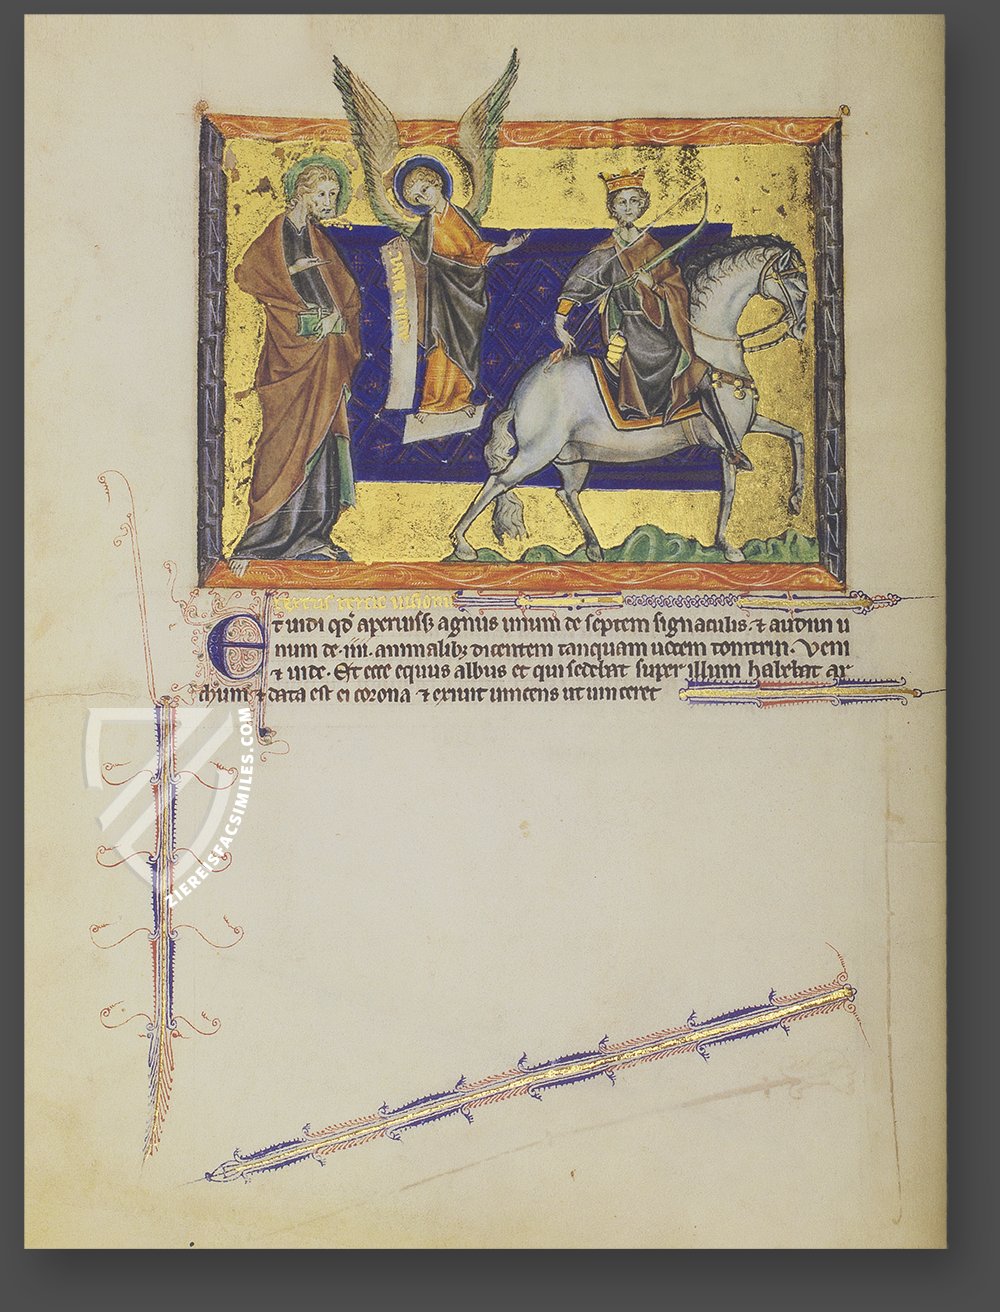 textus tercie visionis
Et uidi qđ aperuiss agnus unum de septem signaculis. ⁊ audiui u
num de .iiii. animalibꝫ dicentem tanquam uocem tonitrui. Veni
⁊ uide. Et ecce equus albus et qui sedebat super illum habebat ar
chum ⁊ data est ei corona ⁊ exiuit uincens ut uinceret
ZIEREISFACSIMILES.COM